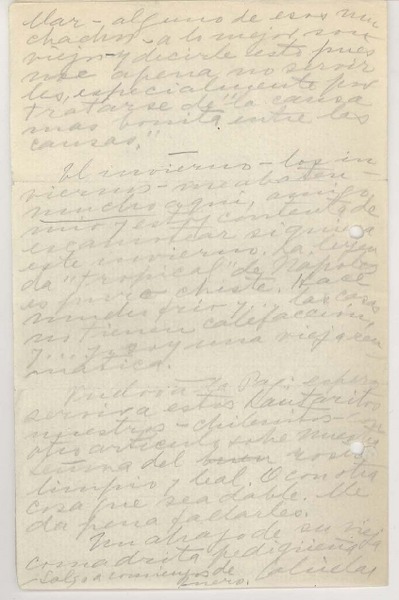 Mar - alguno de esos mu
chachos - a lo mejor son
viejos - y decirle esto, pues
me apena no servir
les, especialmente por
tratarse de "la causa
más bonita entre las
causas."
El invierno - los in
viernos - me abaten
mucho aquí, amigo
mío y estoy contenta de
escamotear siquiera
este invierno. La leyen
da "tropical" de Nápoles
es puro chiste. Hace
mucho frío y... las casas
no tienen calefacción,
y... y soy una vieja reu
mática.
serviré a estos Lautaritos
nuestros - chilenitos -
otro artículo sobre nuestra
señora del buen rostro
limpio y leal. O con otra
cosa que sea dable. Me
da pena fallarles.
Un abrazo de su vieja
comadrita pedigüeña
Salgo a comienzos de
Enero.